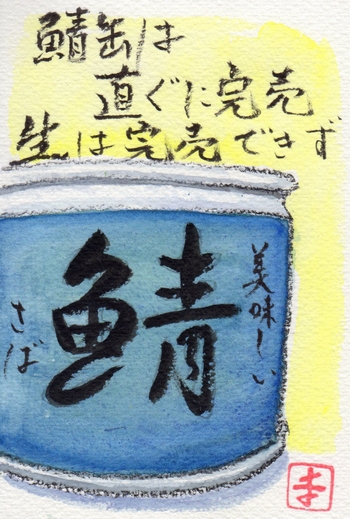 鯖缶は
直ぐに完売
生は完売できず
美味しい
鯖
さば